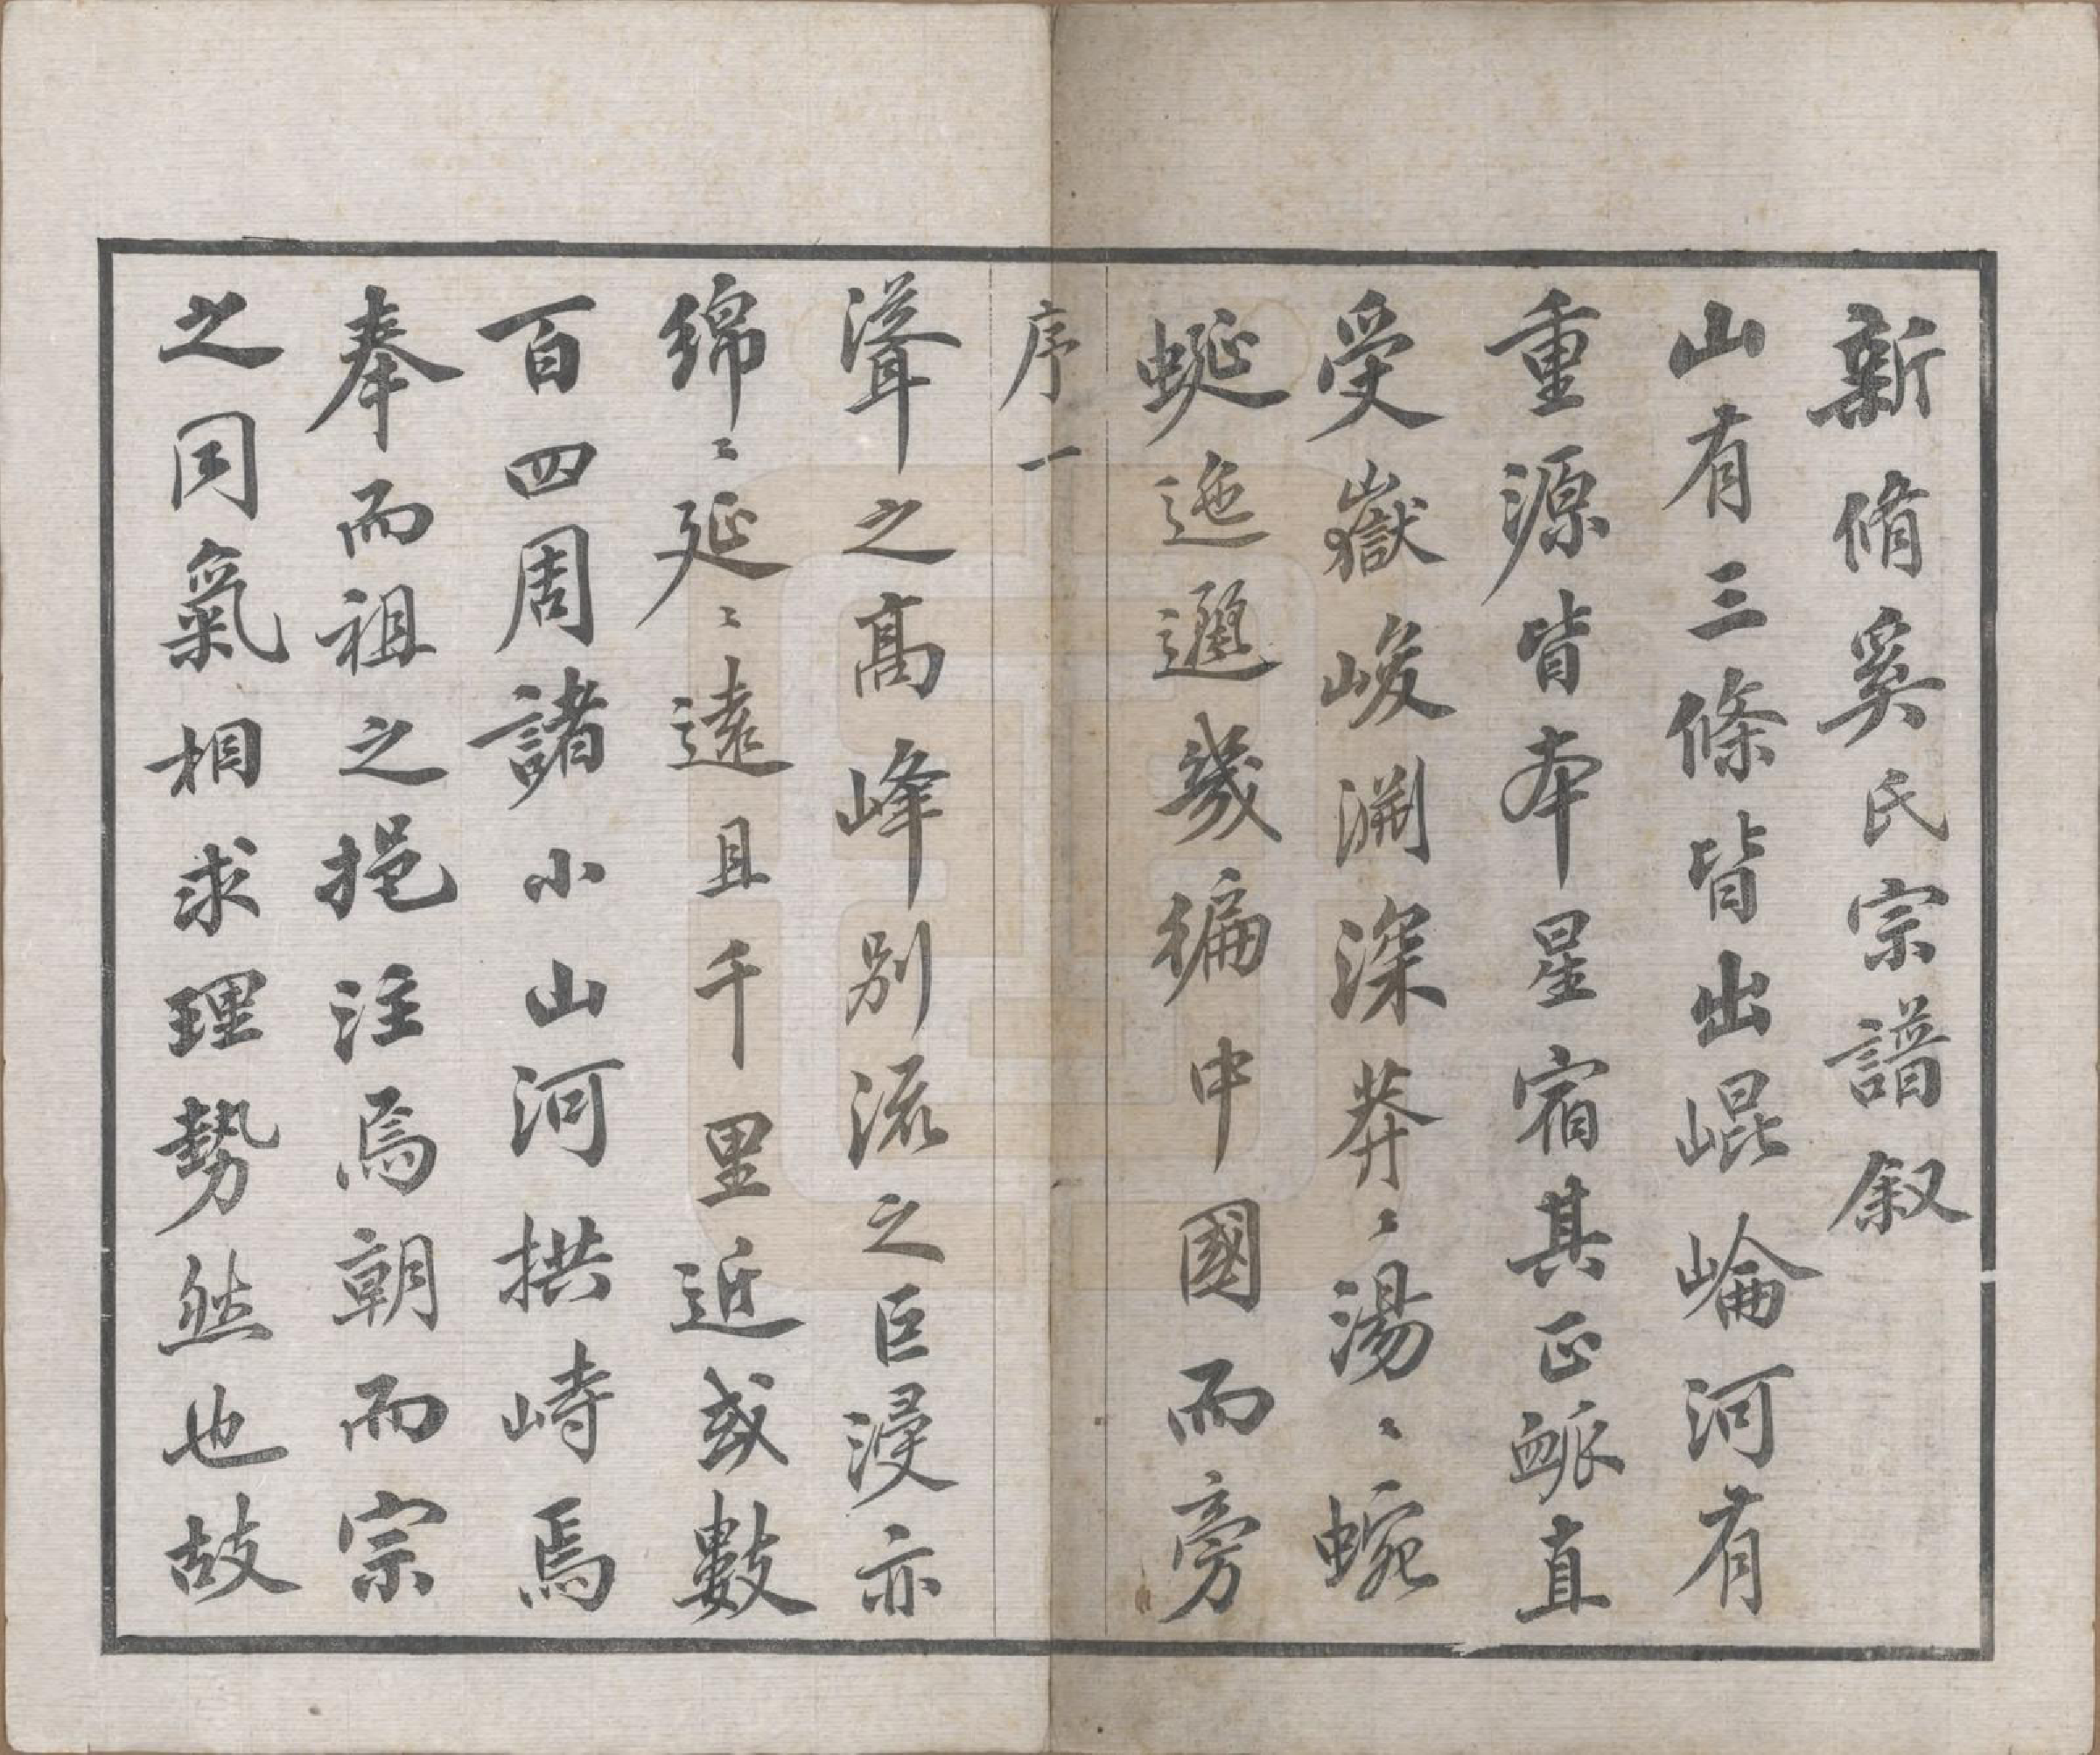 新脩奚氏宗譜叙
山有三條皆出崐崘河有
重源皆本星宿其正䘑直
受嶽峻淵深莽〻湯〻蜿
蜒迤邐幾徧中國而旁
序一
聳之高峰别流之巨浸亦
綿〻延〻遠且千里近或數
百四周諸小山河拱峙焉
奉而祖之挹注焉朝而宗
之同氣相求理勢然也故